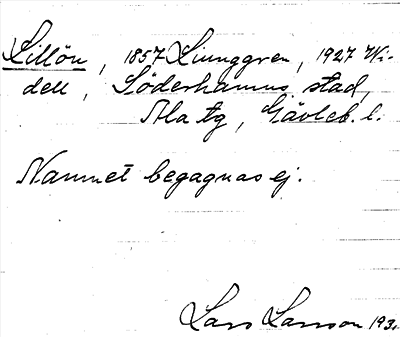 Lillön, 1857 Ljunggren, 1927 Wi-
dell, Söderhamns stad,
Ala tg, Gävleb. l.
Namnet begagnas ej.
Lars Larsson 193